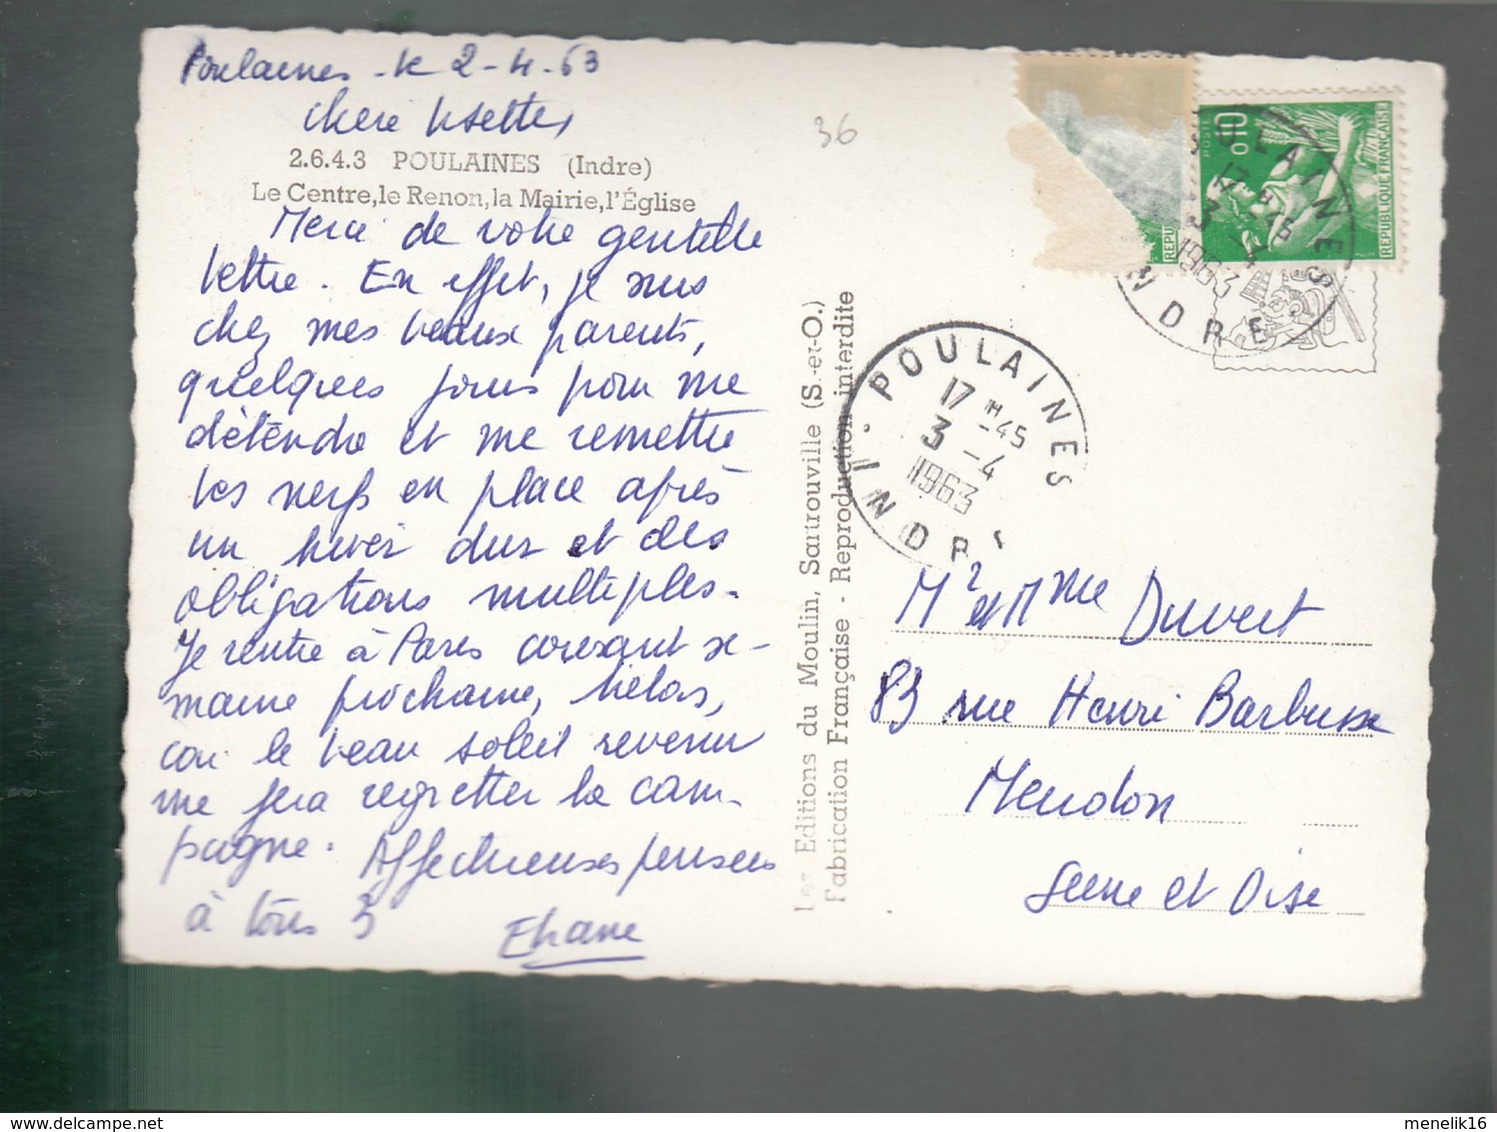 Poulaines - le 2-4-63
chère Lisette,
36
2.6.4.3 POULAINES (Indre)
Le Centre, le Renon, la Mairie, l'Église
Merci de votre gentille
lettre. En effet, je suis
chez mes beaux parents,
quelques jours pour me
détendre et me remettre
les nerfs en place après
un hiver dur et des
obligations multiples.
Je rentre à Paris courant se-
maine prochaine, hélas,
car le beau soleil revenu
me fera regretter la cam-
pagne. Affectueuses pensées
à tous 3
Les Editions du Moulin, Sartrouville (S.-et-O.)
Fabrication Française - Reproduction interdite
POULAINES
17 H -45
3 -4
1963
INDRE
POULAINES
17 H -45
3 -4
1963
INDRE
0,10
POSTES
REPUBLIQUE-FRANÇAISE
REPU
Mr et Mme Duvert
83 rue Henri Barbusse
Meudon
Seine et Oise
http://www.delcampe.net
menelik16